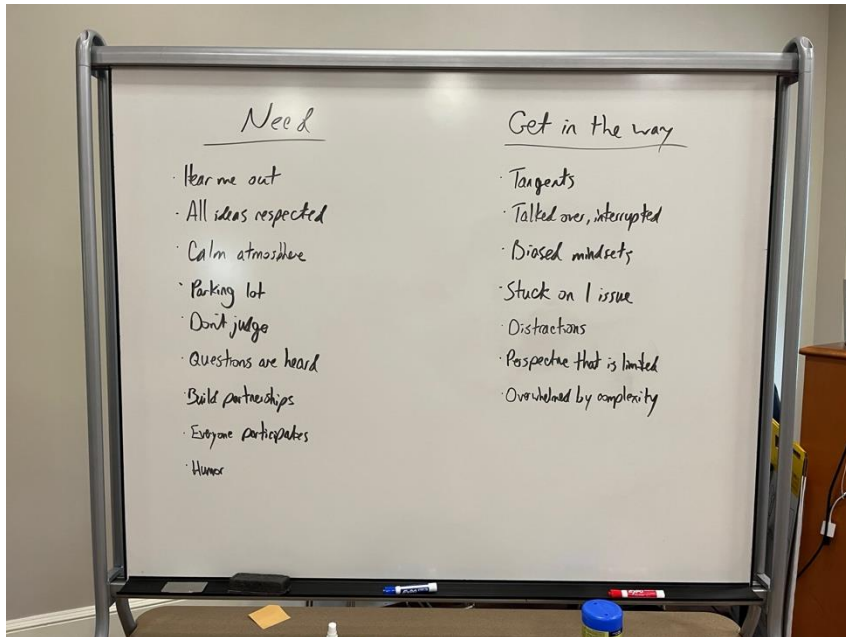 Need
· Hear me out
· All ideas respected
· Calm atmosphere
· Parking lot
· Don't judge
· Questions are heard
· Build partnerships
· Everyone participates
· Humor
Get in the way
· Tangents
· Talked over, interrupted
· Biased mindsets
· Stuck on 1 issue
· Distractions
· Perspective that is limited
· Overwhelmed by complexity